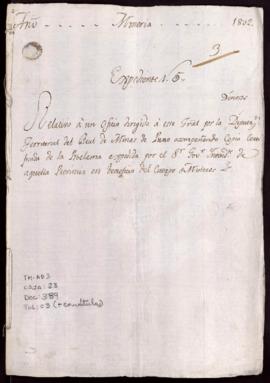 Año Mineria 1802
3
Expediente 1.6.
Dineros
Relativo à un Oficio dirigido à este Tral por la Diputaⁿ
Territorial del Real de Minas de Puno acompañando Copia Certi
ficada de la Providencia expedida por el Sr. Govr. Intendte. de
aquella Provincia en beneficio del Cuerpo de Mineros
TM-AD3
CAJA: 28
DOC: 389
FOL: 03 (+ carátula)